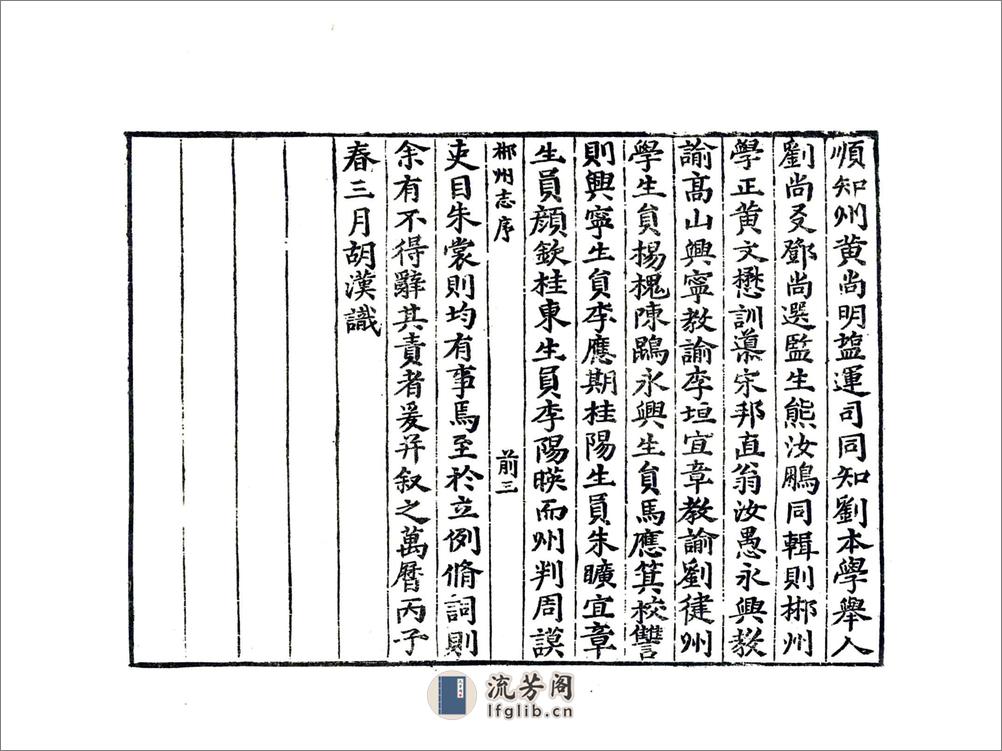 順知州黄尚明塩運司同知劉本學舉人
劉尚爻鄧尚選監生熊汝鵬同輯則郴州
學正黄文懋訓導宋邦直翁汝愚永興教
諭高山興寧教諭李垣宜章教諭劉健州
學生員楊槐陳鷗永興生員馬應箕校讐
則興寧生員李應期桂陽生員朱曠宜章
生員顔欽桂東生員李陽暎而州判周謨
郴州志序
前三
吏目朱裳則均有事焉至於立例脩詞則
余有不得辭其責者爰并叙之萬曆丙子
春三月胡漢識
流芳阁
lfglib.cn